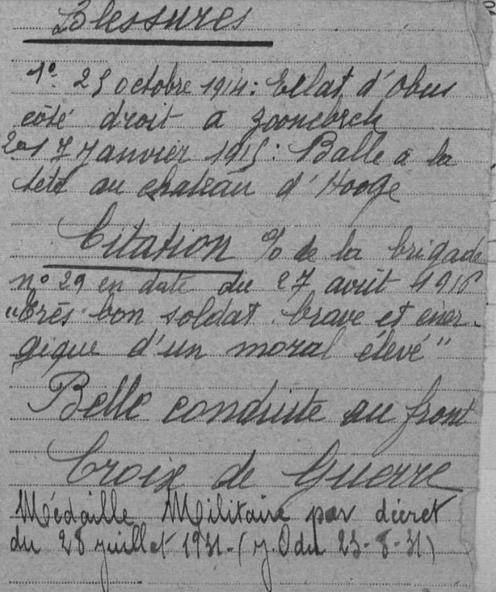 Blessures
1º 25 octobre 1914: Eclat d'Obus
côté droit a Zoonebrek
2º 17 Janvier 1915: Balle a la
tête au chateau d'Hooge
Citation % de la brigade
nº 29 en date du 27 avrit 1916
"très bon soldat brave et éner-
gique d'un moral élevé"
Belle conduite au front
Croix de Guerre
Médaille Militaire par décret
du 28 juillet 1931-(J.O du 23-8-31)